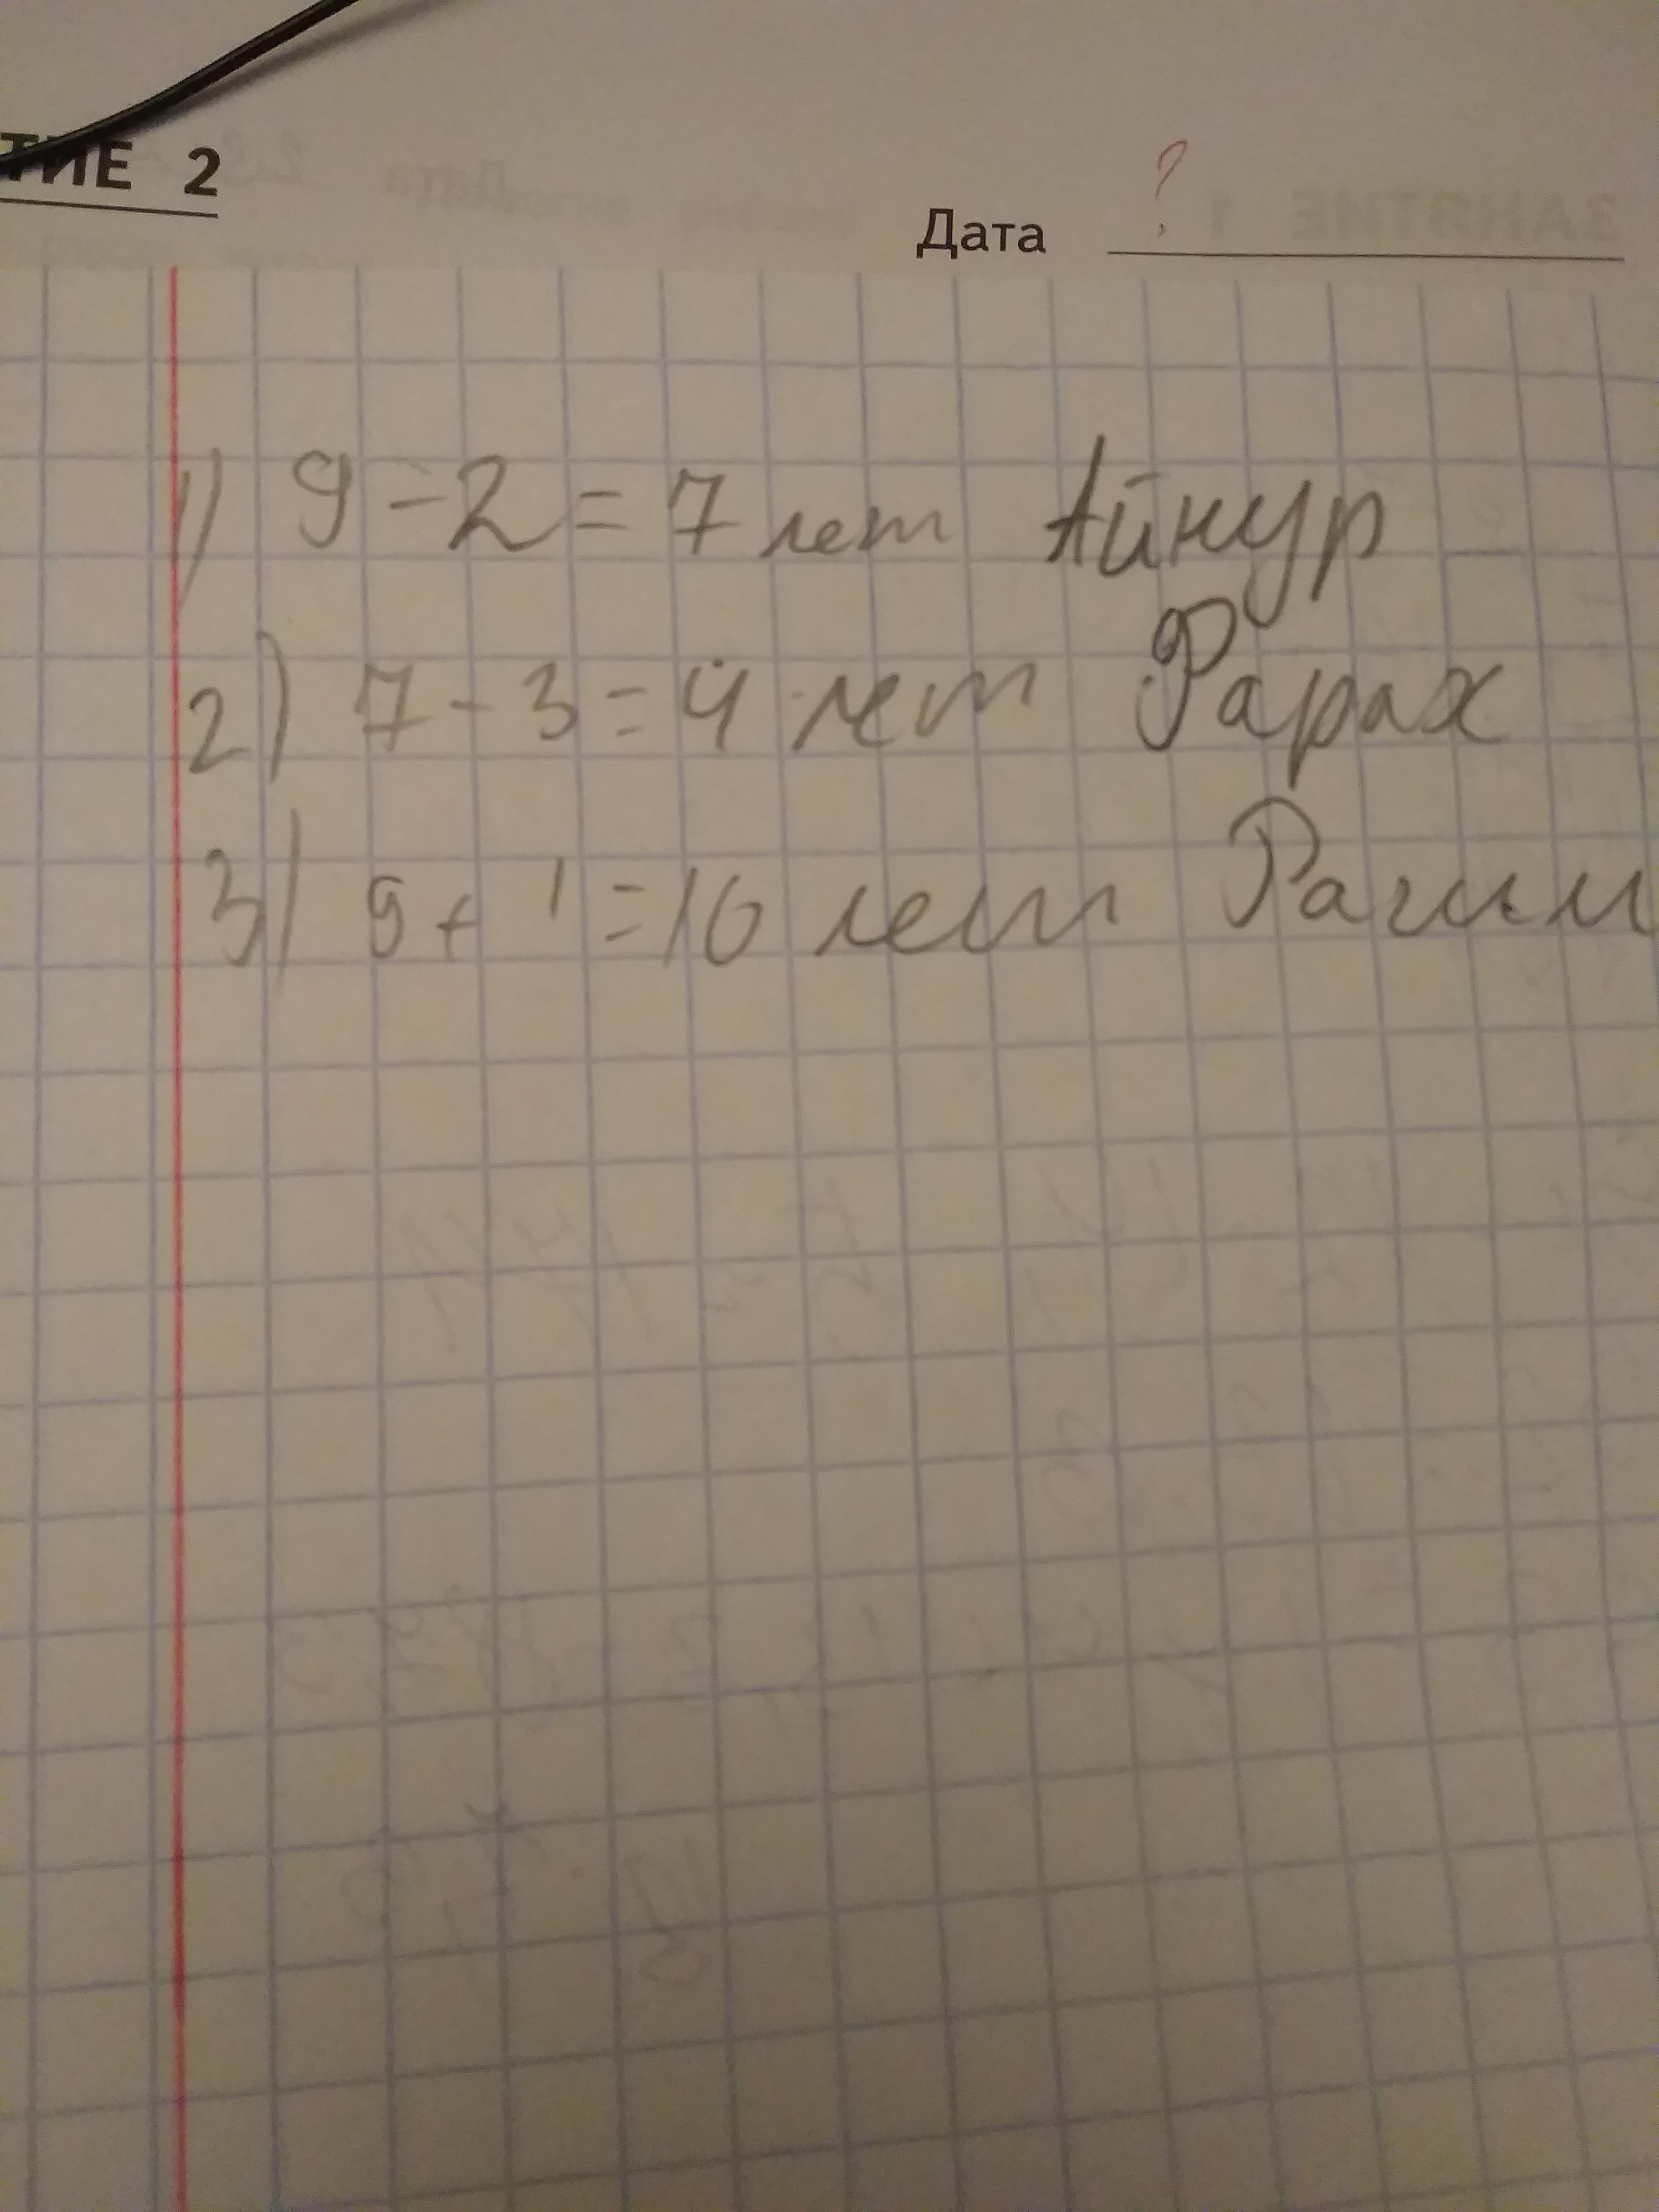 ТИЕ 2
Дата ?
1) 9 - 2 = 7 лет Айнур
2) 7 - 3 = 4 лет Фарах
3) 9 + 1 = 10 лет Рагим